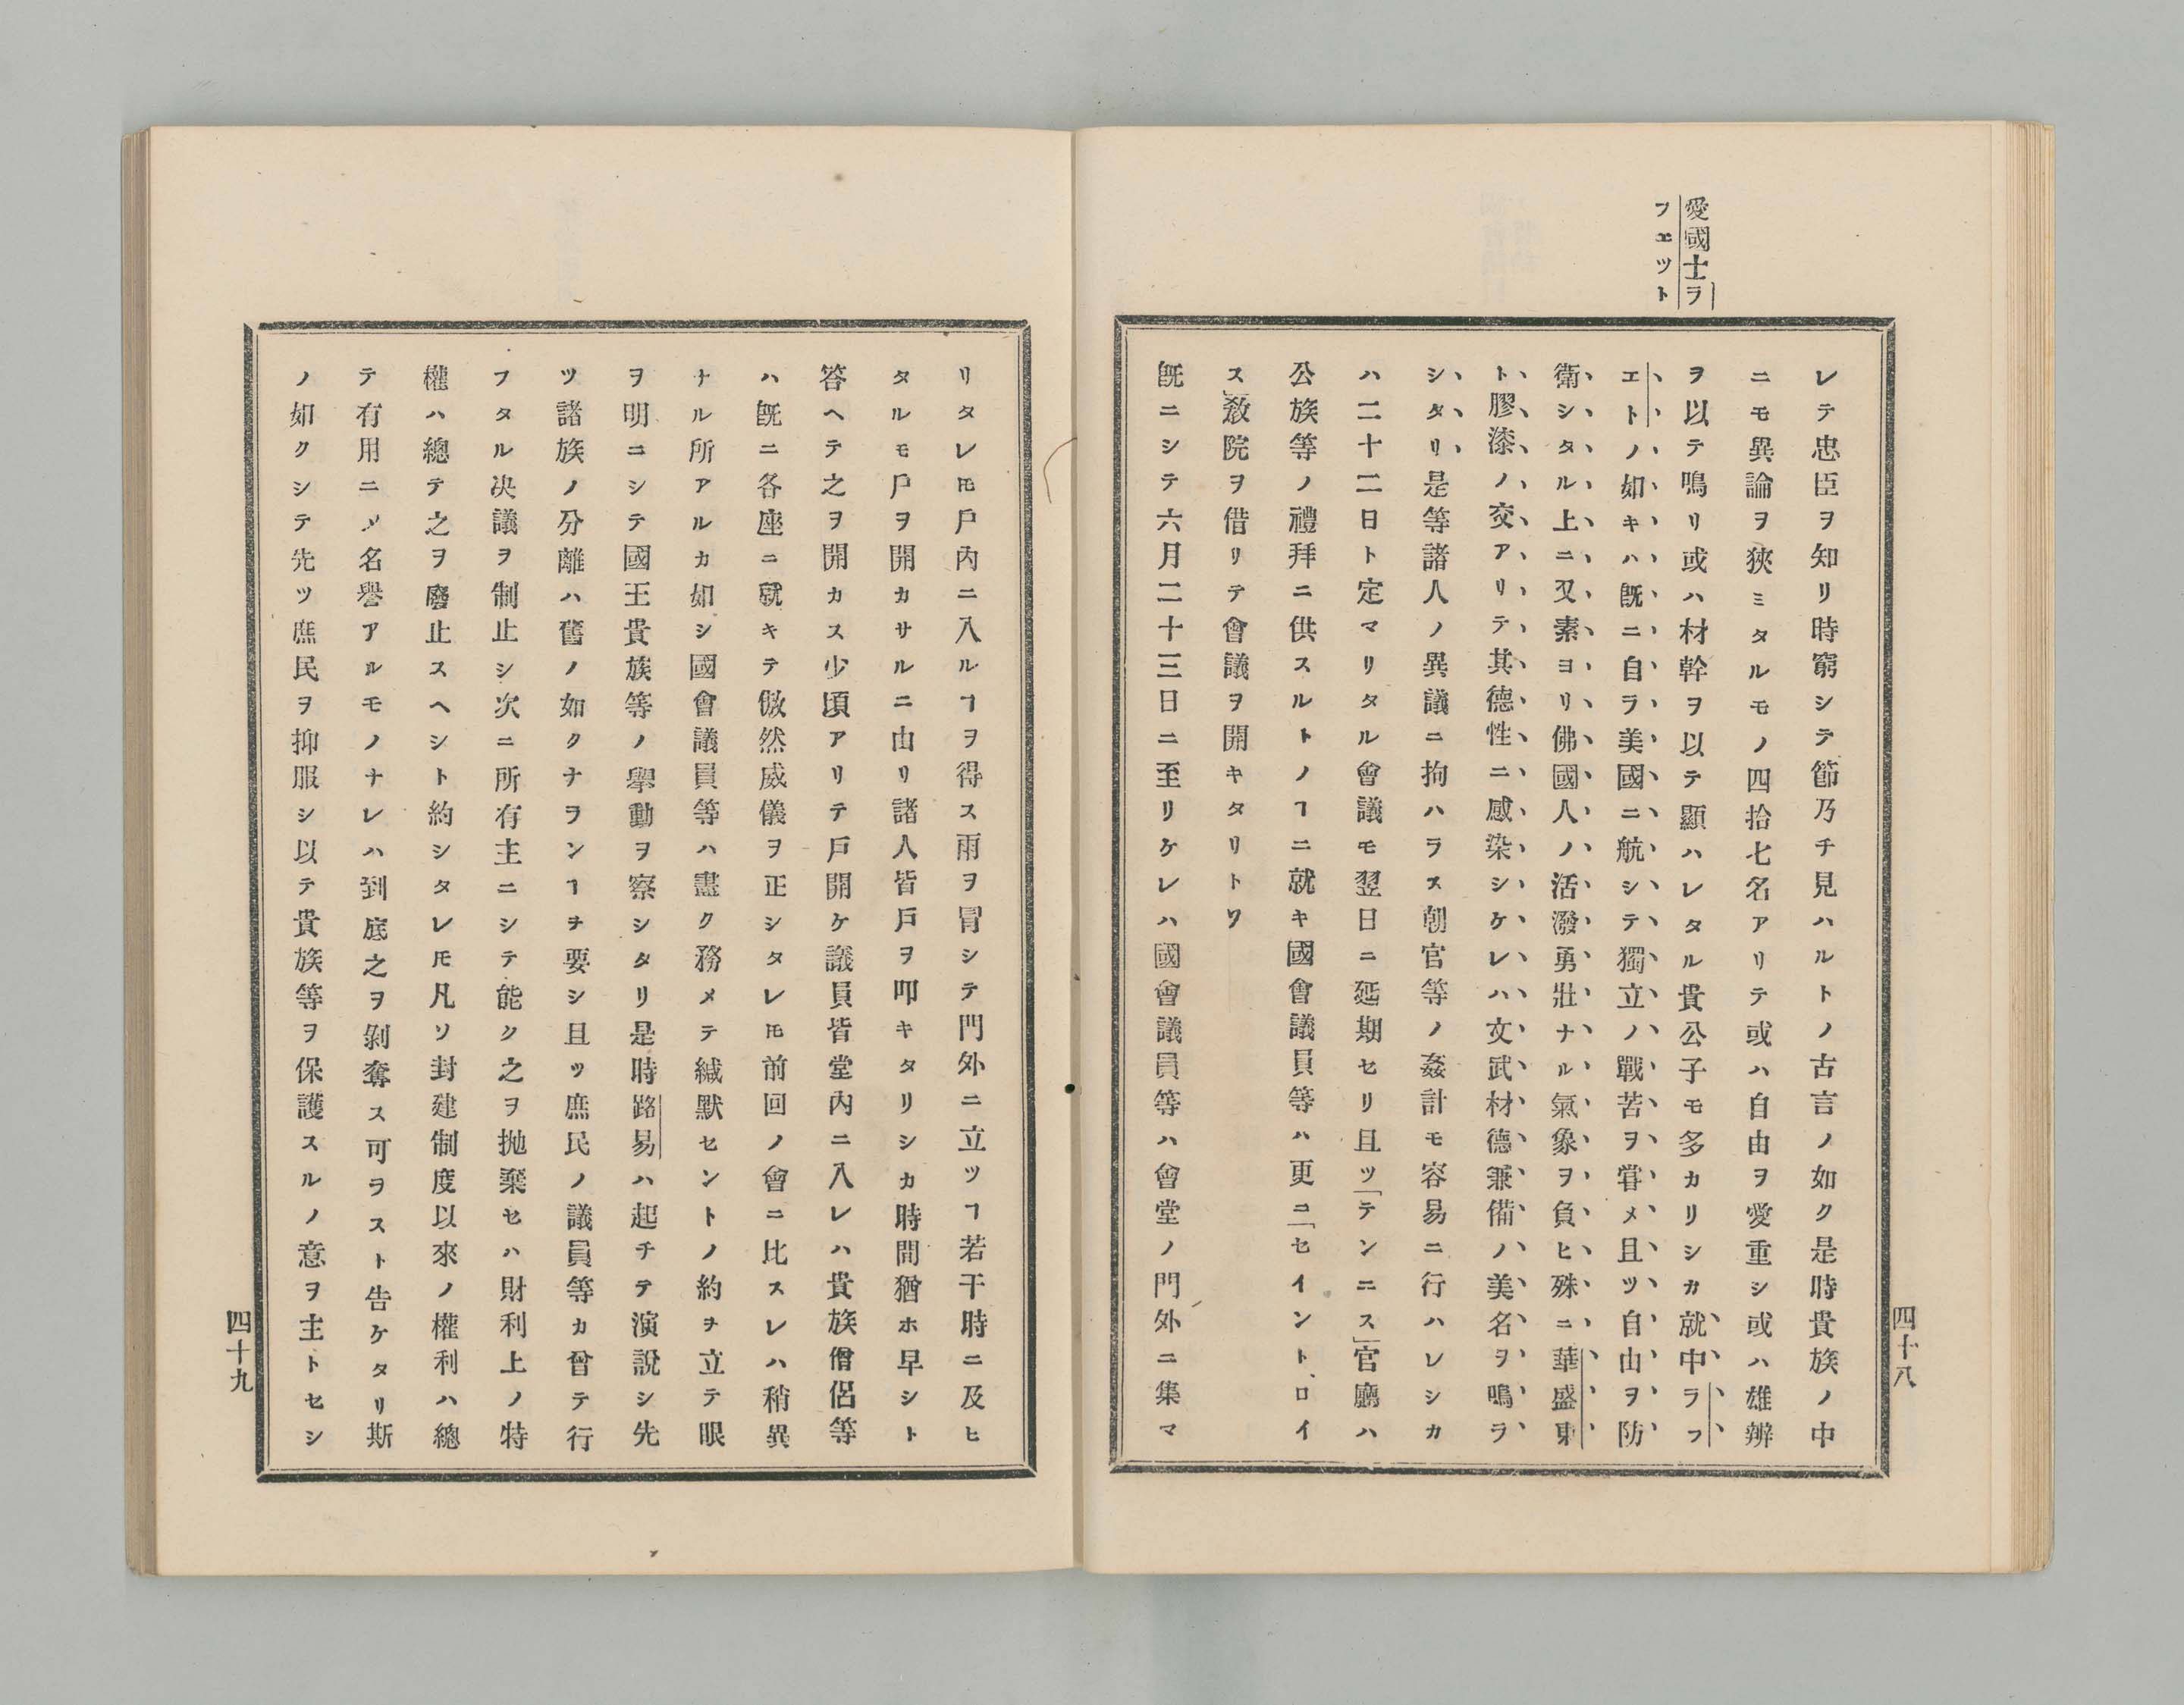 愛國士ラ
フエット
レテ忠臣ヲ知リ時窮シテ節乃チ見ハルトノ古言ノ如ク是時貴族ノ中
ニモ異論ヲ狹ミタルモノ四拾七名アリテ或ハ自由ヲ愛重シ或ハ雄辨
ヲ以テ鳴リ或ハ材幹ヲ以テ顯ハレタル貴公子モ多カリシカ就中ラフ
エトノ如キハ既ニ自ラ美國ニ航シテ獨立ノ戰苦ヲ甞メ且ツ自由ヲ防
衛シタル上ニ又素ヨリ佛國人ノ活潑勇壯ナル氣象ヲ負ヒ殊ニ華盛東
ト膠漆ノ交アリテ其德性ニ感染シケレハ文武材德兼備ノ美名ヲ鳴ラ
シタリ是等諸人ノ異議ニ拘ハラス朝官等ノ姦計モ容易ニ行ハレシカ
ハ二十二日ト定マリタル會議モ翌日ニ延期セリ且ツ「テンニス」官廳ハ
公族等ノ禮拜ニ供スルトノヿニ就キ國會議員等ハ更ニ「セイント、ロイ
ス」敎院ヲ借リテ會議ヲ開キタリトゾ
既ニシテ六月二十三日ニ至リケレハ國會議員等ハ會堂ノ門外ニ集マ
四十八
リタレ𪜈戶內ニ入ルヿヲ得ス雨ヲ冒シテ門外ニ立ツヿ若干時ニ及ヒ
タルモ戶ヲ開カサルニ由リ諸人皆戶ヲ叩キタリシカ時間猶ホ早シト
答ヘテ之ヲ開カス少頃アリテ戶開ケ議員皆堂內ニ入レハ貴族僧侶等
ハ既ニ各座ニ就キテ傲然威儀ヲ正シタレ𪜈前回ノ會ニ比スレハ稍異
ナル所アルカ如シ國會議員等ハ盡ク務メテ緘默セントノ約ヲ立テ眼
ヲ明ニシテ國王貴族等ノ擧動ヲ察シタリ是時路易ハ起チテ演說シ先
ツ諸族ノ分離ハ舊ノ如クナヲンヿヲ要シ且ツ庶民ノ議員等カ曾テ行
フタル决議ヲ制止シ次ニ所有主ニシテ能ク之ヲ抛棄セハ財利上ノ特
權ハ總テ之ヲ廢止スヘシト約シタレ𪜈凡ソ封建制度以來ノ權利ハ總
テ有用ニ〆名譽アルモノナレハ到底之ヲ剝奪ス可ヲスト告ケタリ斯
ノ如クシテ先ツ庶民ヲ抑服シ以テ貴族等ヲ保護スルノ意ヲ主トセシ
四十九